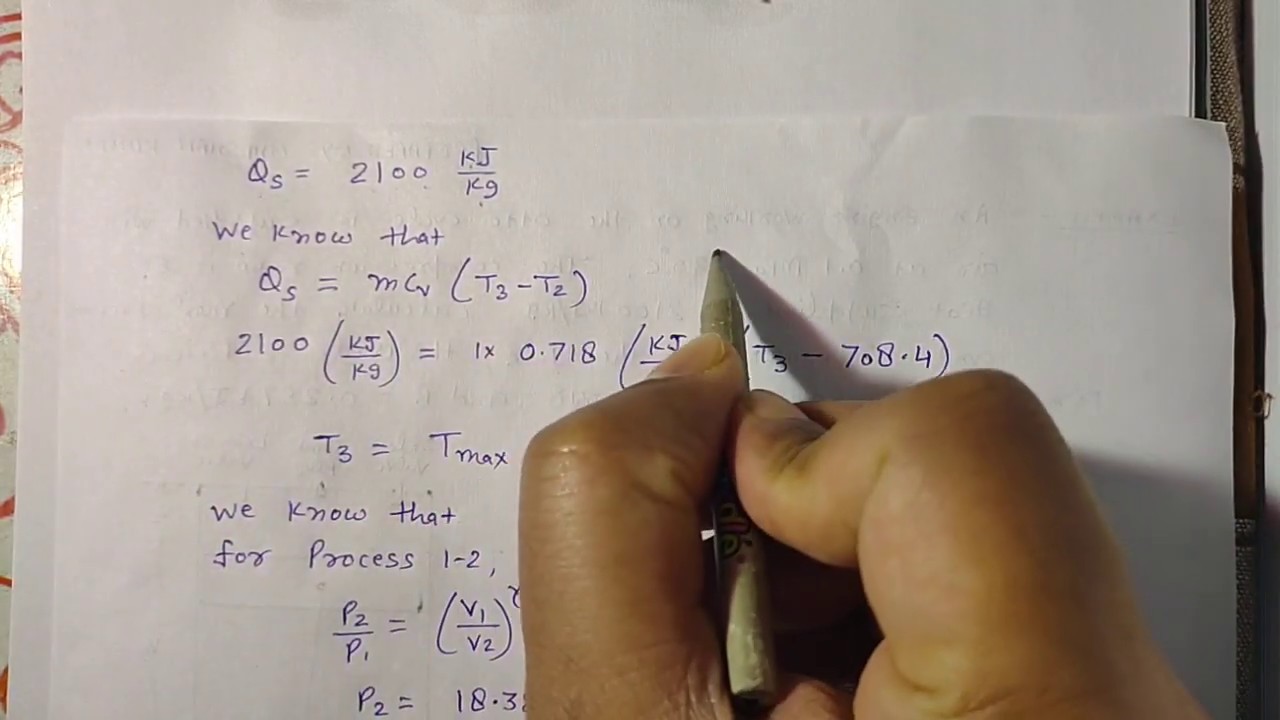 Qs = 2100 KJ/Kg
We know that
Qs = mCv (T3 - T2)
2100 (KJ/Kg) = 1x 0.718 (KJ T3 - 708.4)
T3 = Tmax
We know that
for Process 1-2,
P2/P1 = (V1/V2)
P2 = 18.3